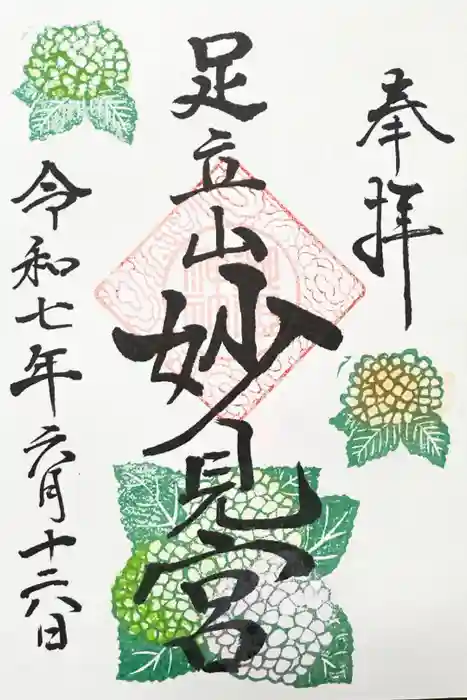 奉拝
足立山妙見宮
令和七年六月十六日